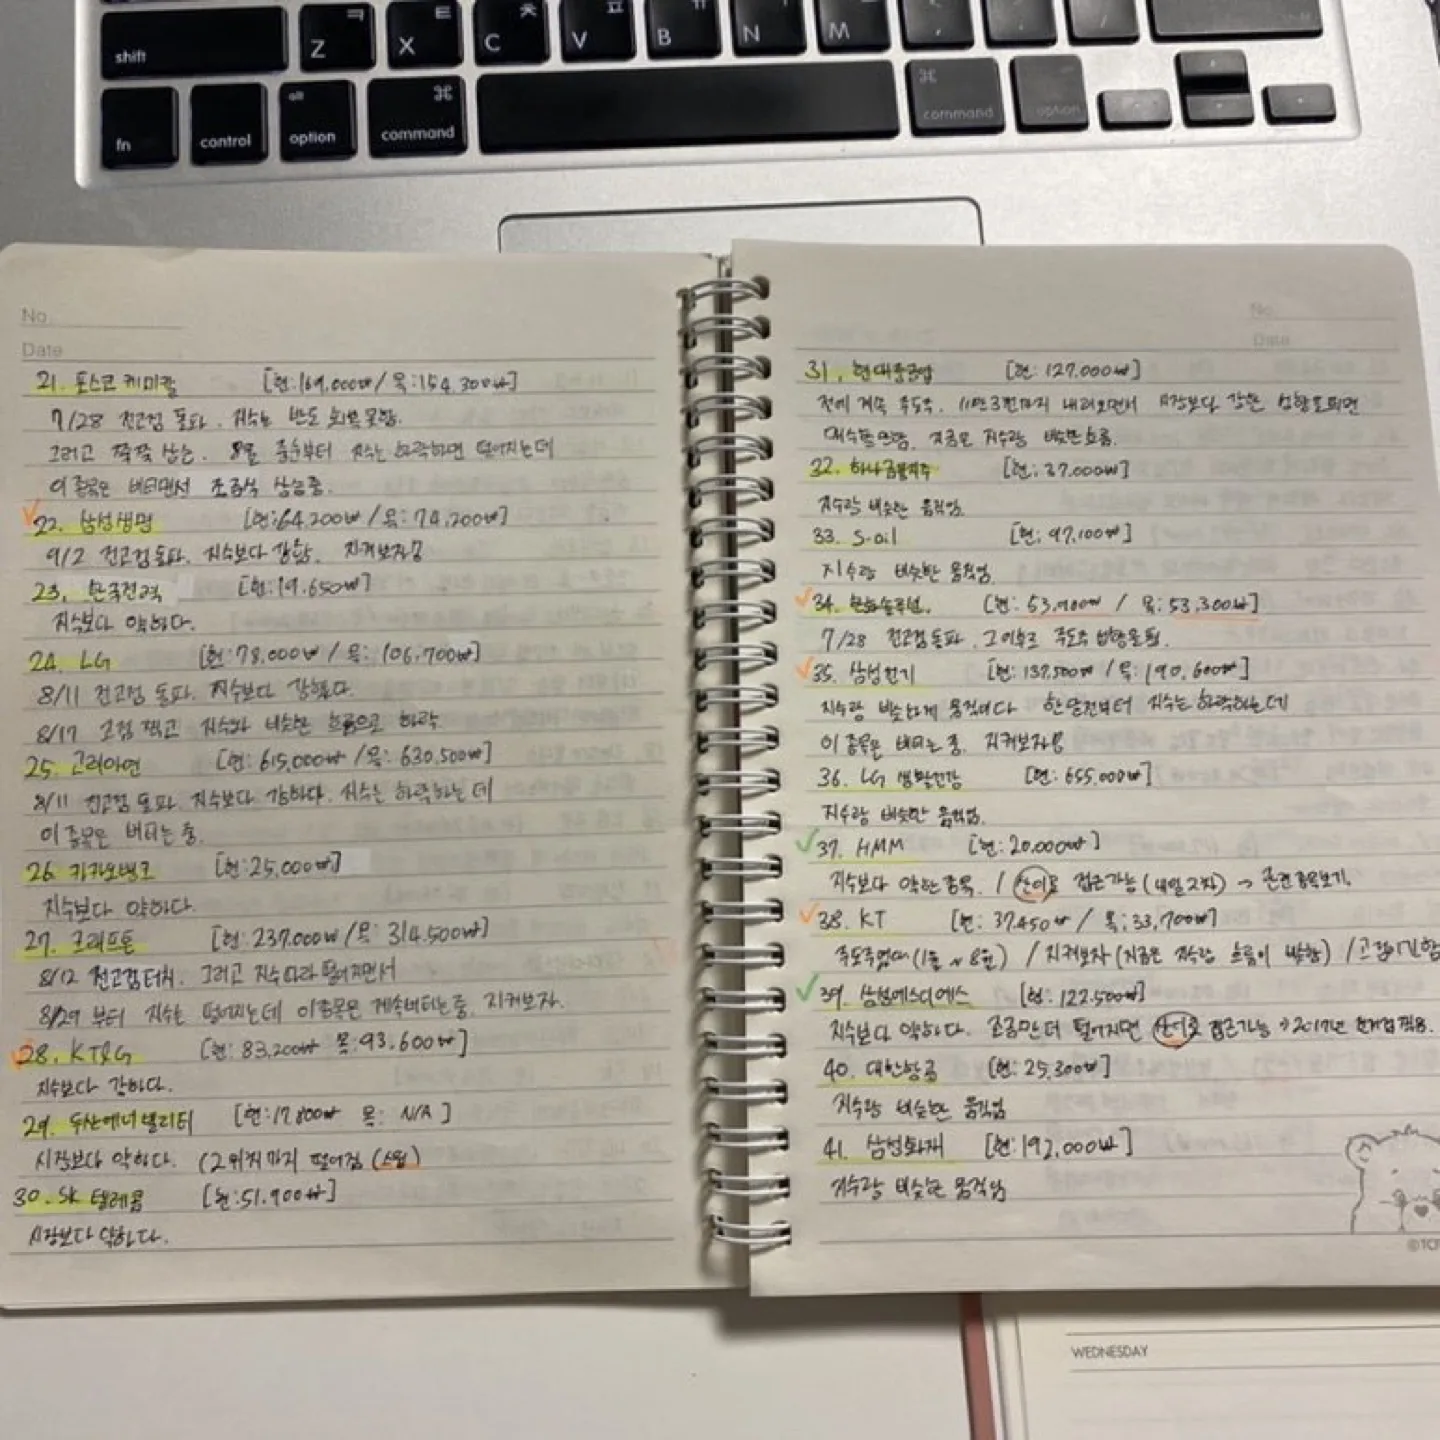 shift
Z ㅋ
X ㅌ
C ㅊ
V ㅍ
B ㅠ
N
M
fn
control
alt option
⌘ command
⌘ command
option
No.
Date
21. 포스코케미칼 [현:169,000₩ / 목:154,300₩]
7/28 전고점 돌파. 지수는 반도 회복 못함.
그리고 쭉쭉 상승. 8월 중순부터 지수는 하락하면 떨어지는데
이 종목은 버티면서 조금씩 상승중.
22. 삼성생명 [현:64,200₩ / 목:74,200₩]
9/2 전고점 돌파. 지수보다 강함. 지켜보자
23. 한국전력 [현:19,650₩]
지수보다 약하다.
24. LG [현:78,000₩ / 목:106,700₩]
8/11 전고점 돌파. 지수보다 강했다.
8/17 고점 찍고 지수와 비슷한 흐름으로 하락
25. 고려아연 [현:615,000₩ / 목:630,500₩]
8/11 전고점 돌파. 지수보다 강하다. 지수는 하락하는데
이 종목은 버티는 중.
26. 카카오뱅크 [현:25,000₩]
지수보다 약하다.
27. 크래프톤 [현:237,000₩ / 목:314,500₩]
8/12 전고점 터치. 그리고 지수따라 떨어지면서
8/29 부터 지수는 떨어지는데 이종목은 계속버티는중. 지켜보자.
28. KT&G [현:83,200₩ 목:93,600₩]
지수보다 강하다.
29. 두산에너빌리티 [현:17,800₩ 목: N/A]
시장보다 약하다. (2위치까지 떨어짐 (스윙)
30. SK 텔레콤 [현:51,900₩]
시장보다 약하다.
No.
Date
31. 현대중공업 [현:127,000₩]
전에 계속 주도주. 11만3천까지 내려오면서 시장보다 강한 성향 보이면
매수할만함. 지금은 지수랑 비슷한 흐름.
32. 하나금융지주 [현:37,000₩]
지수랑 비슷한 움직임.
33. S-oil [현:97,100₩]
지수랑 비슷한 움직임.
34. 한화솔루션. [현: 53,900₩ / 목:53,300₩]
7/28 전고점 돌파. 그 이후로 주도주 성향을 띔.
35. 삼성전기 [현:137,500₩ / 목:190,600₩]
지수랑 비슷하게 움직이다 한달전부터 지수는 하락하는데
이 종목은 버티는 중. 지켜보자
36. LG 생활건강 [현:655,000₩]
지수랑 비슷한 움직임.
37. HMM [현:20,000₩]
지수보다 약한 종목. / 접근가능 (내일 2차) → 관련종목보기.
38. KT [현:37,450₩ / 목:33,700₩]
주도주였다 (1월 ~ 8월) / 지켜보자 (지금은 지수랑 흐름이 비슷함) /
39. 삼성에스디에스 [현:122,500₩]
지수보다 약하다. 조금만 더 떨어지면 접근가능 → 2017년
40. 대한항공 [현:25,300₩]
지수랑 비슷한 움직임
41. 삼성화재 [현:192,000₩]
지수랑 비슷한 움직임
WEDNESDAY